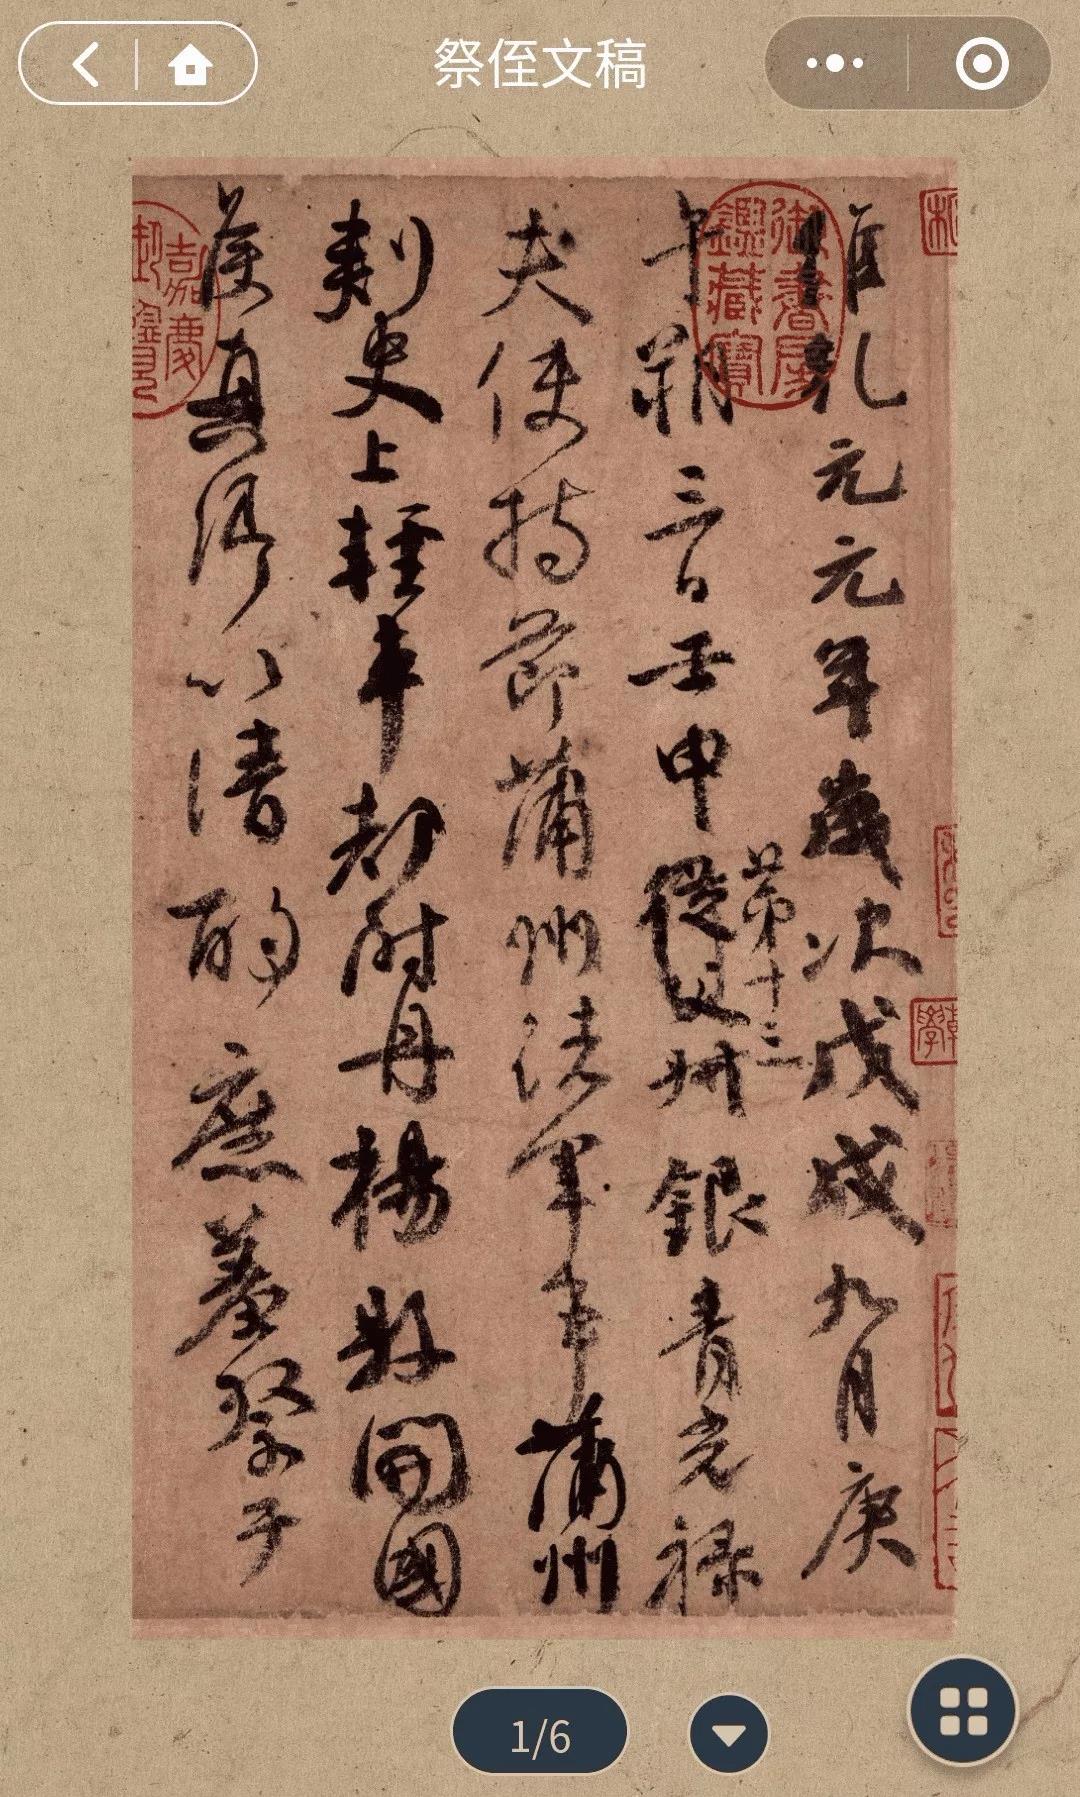 祭侄文稿
維乾元元年歲次戊戌九月庚
午朔三日壬申第十三從父叔銀青光祿
夫使持節蒲州諸軍事蒲州
刺史上輕車都尉丹楊縣開國
侯真卿以清酌庶羞祭于
御書房鑑藏寶
嘉慶御覽
1/6